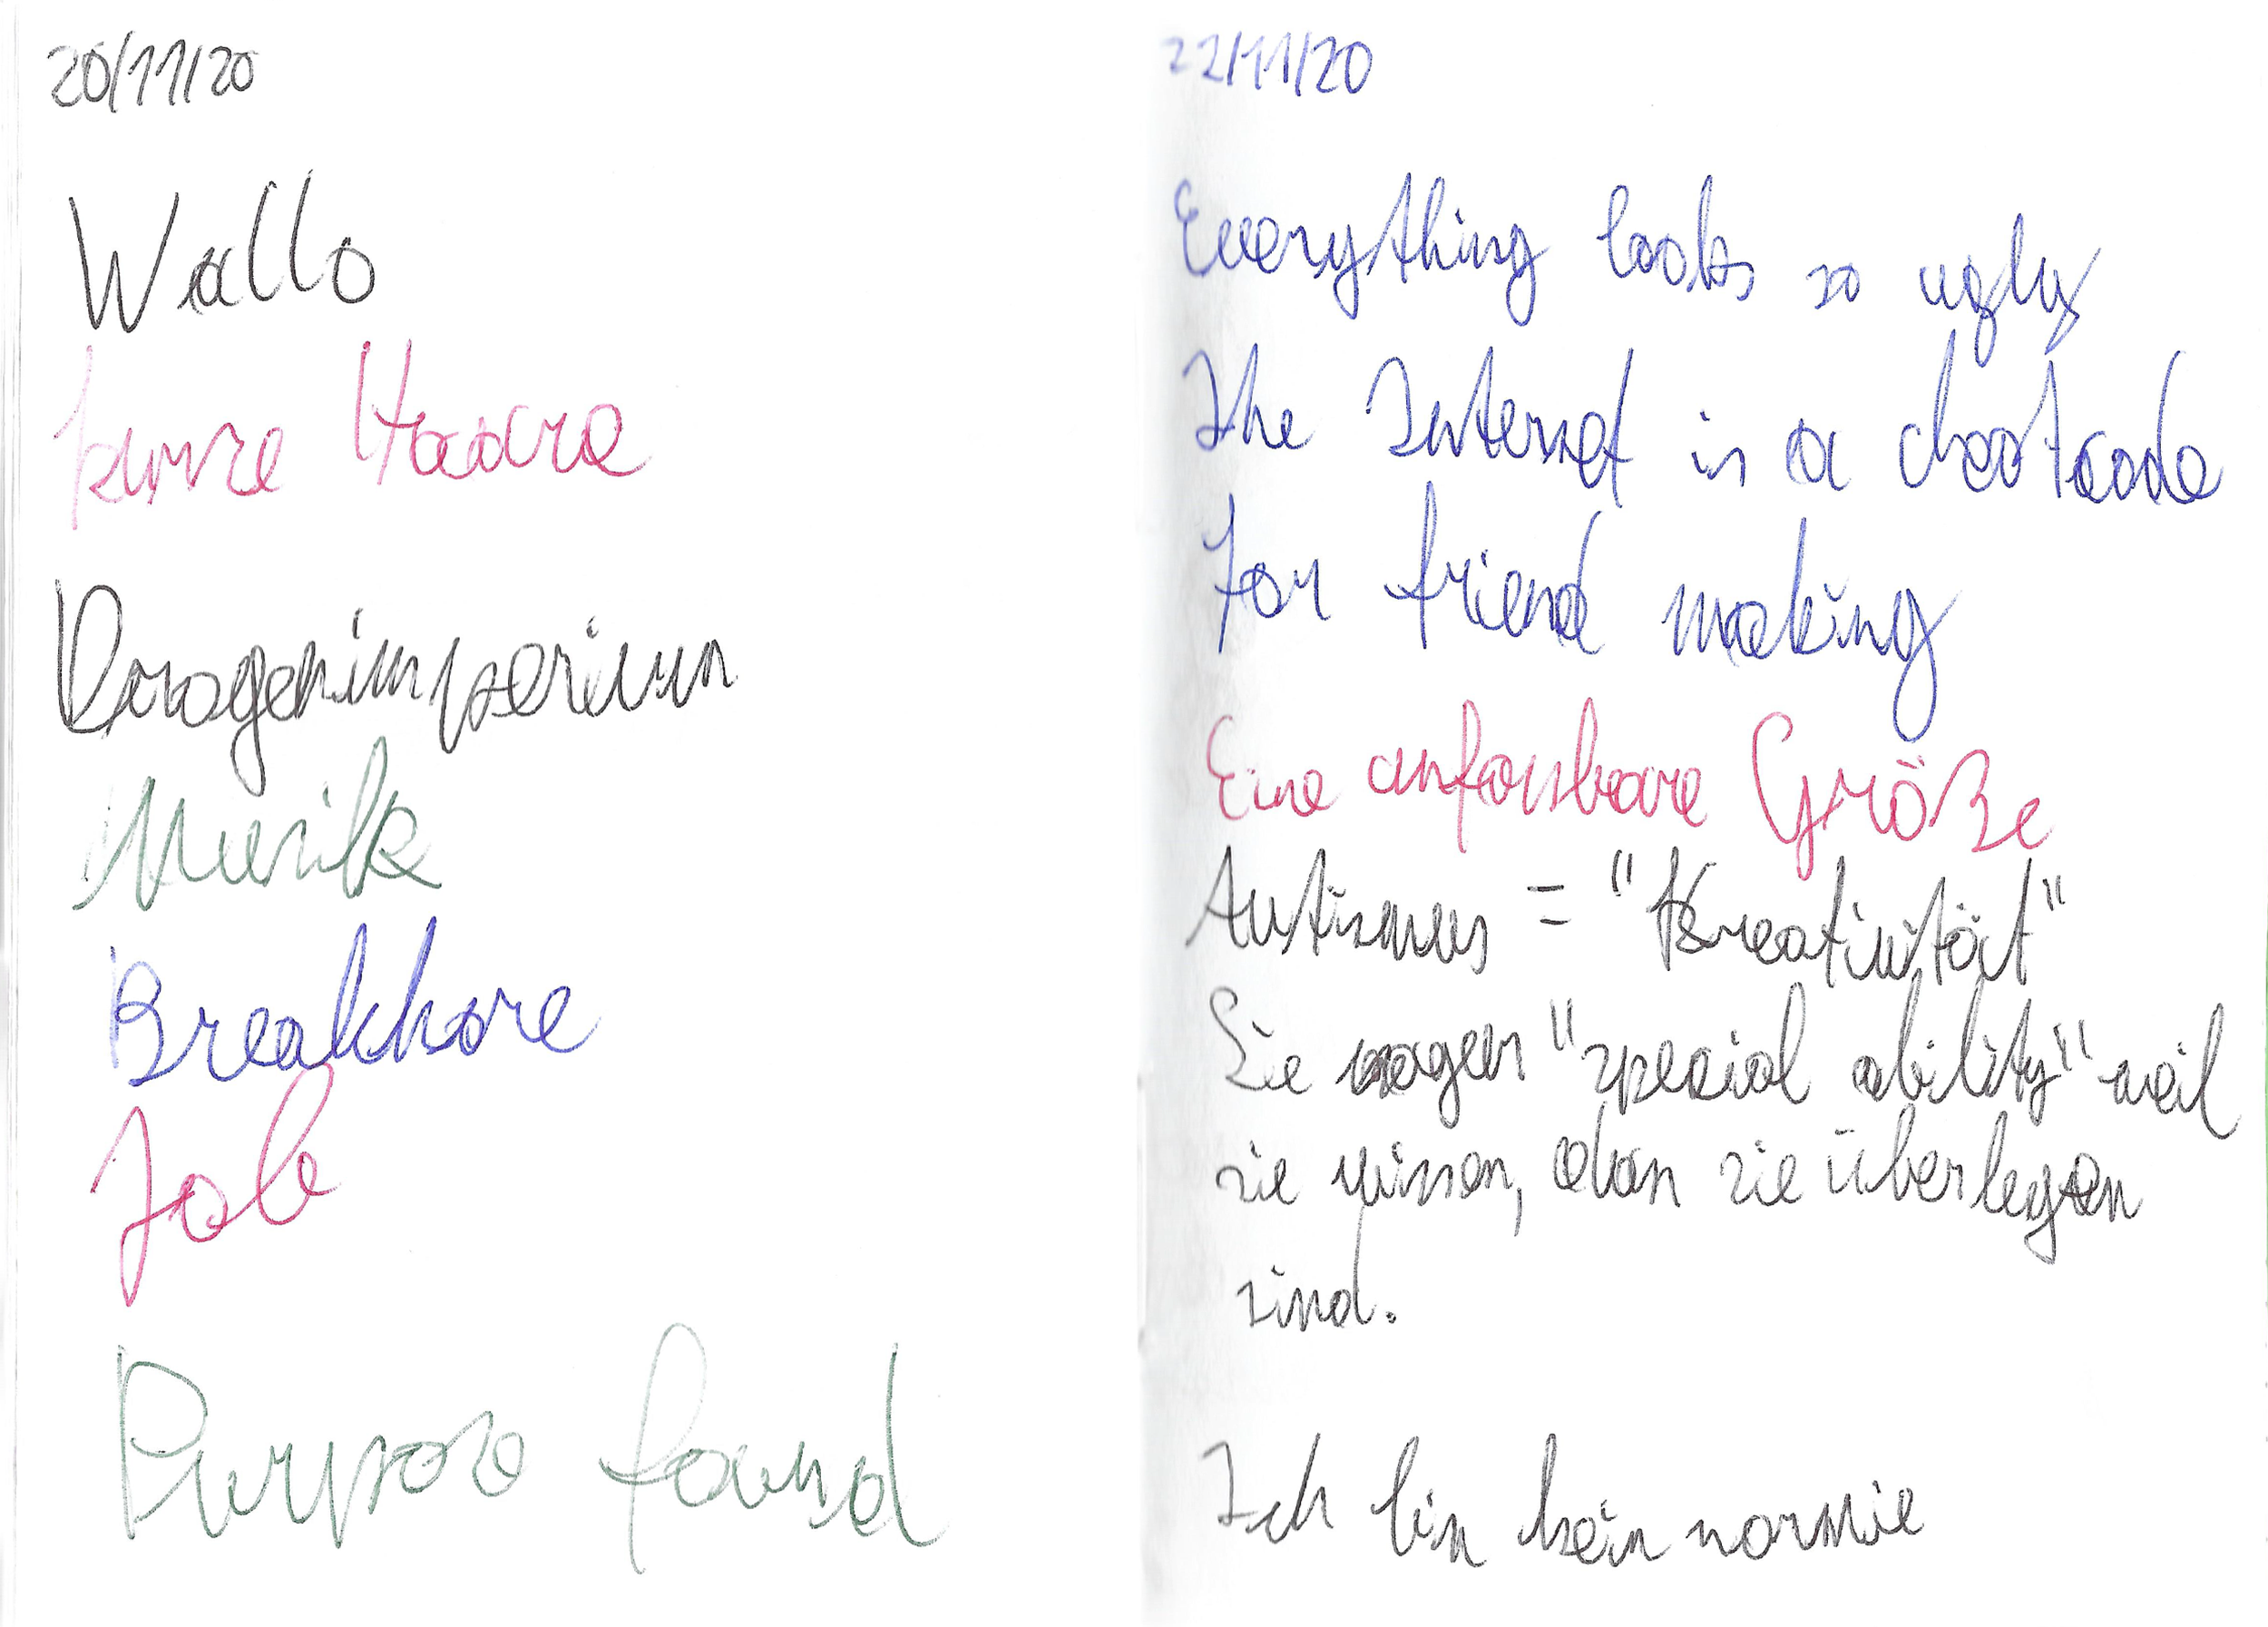 20/11/20
Wallo
kurze Haare
Drogenimperium
Musik
Breakkore
Job
Purpose found
22/11/20
Everything looks so ugly
The Internet is a cheatcode
for friend making
Eine unfassbare Größe
Autismus = "Kreativität"
Sie sagen "special ability" weil
sie wissen, dass sie überlegen
sind.
Ich bin kein normie